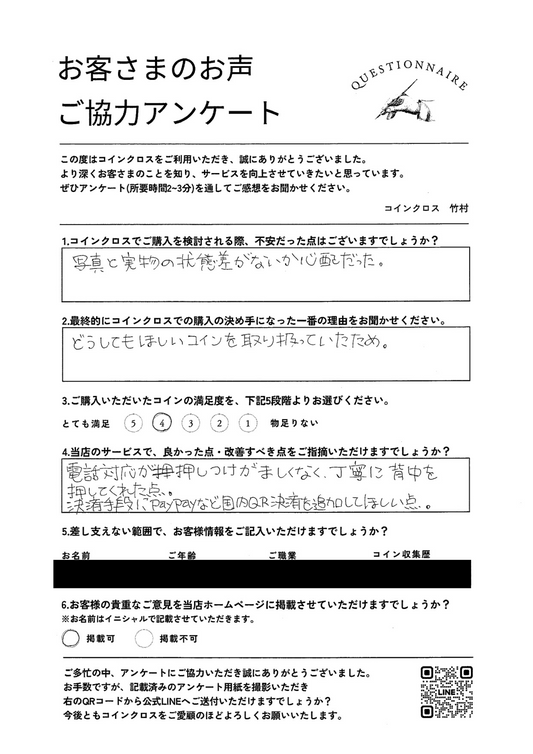 お客さまのお声
ご協力アンケート
QUESTIONNAIRE
この度はコインクロスをご利用いただき、誠にありがとうございました。
より深くお客さまのことを知り、サービスを向上させていきたいと思っています。
ぜひアンケート(所要時間2~3分)を通してご感想をお聞かせください。
コインクロス 竹村
1.コインクロスでご購入を検討される際、不安だった点はございますでしょうか？
写真と実物の状態差がないか心配だった。
2.最終的にコインクロスでの購入の決め手になった一番の理由をお聞かせください。
どうしてもほしいコインを取り扱っていたため。
3.ご購入いただいたコインの満足度を、下記5段階よりお選びください。
とても満足 5 4 3 2 1 物足りない
4.当店のサービスで、良かった点・改善すべき点をご指摘いただけますでしょうか？
電話対応が押しつけがましくなく、丁寧に背中を
押してくれた点。
決済手段にPayPayなど国内QR決済を追加してほしい点。
5.差し支えない範囲で、お客様情報をご記入いただけますでしょうか？
お名前 ご年齢 ご職業 コイン収集歴
6.お客様の貴重なご意見を当店ホームページに掲載させていただけますでしょうか？
※お名前はイニシャルで記載させていただきます。
掲載可 掲載不可
ご多忙の中、アンケートにご協力いただき誠にありがとうございました。
お手数ですが、記載済みのアンケート用紙を撮影いただき
右のQRコードから公式LINEへご送付いただけますでしょうか？
今後ともコインクロスをご愛顧のほどよろしくお願いいたします。
LINE